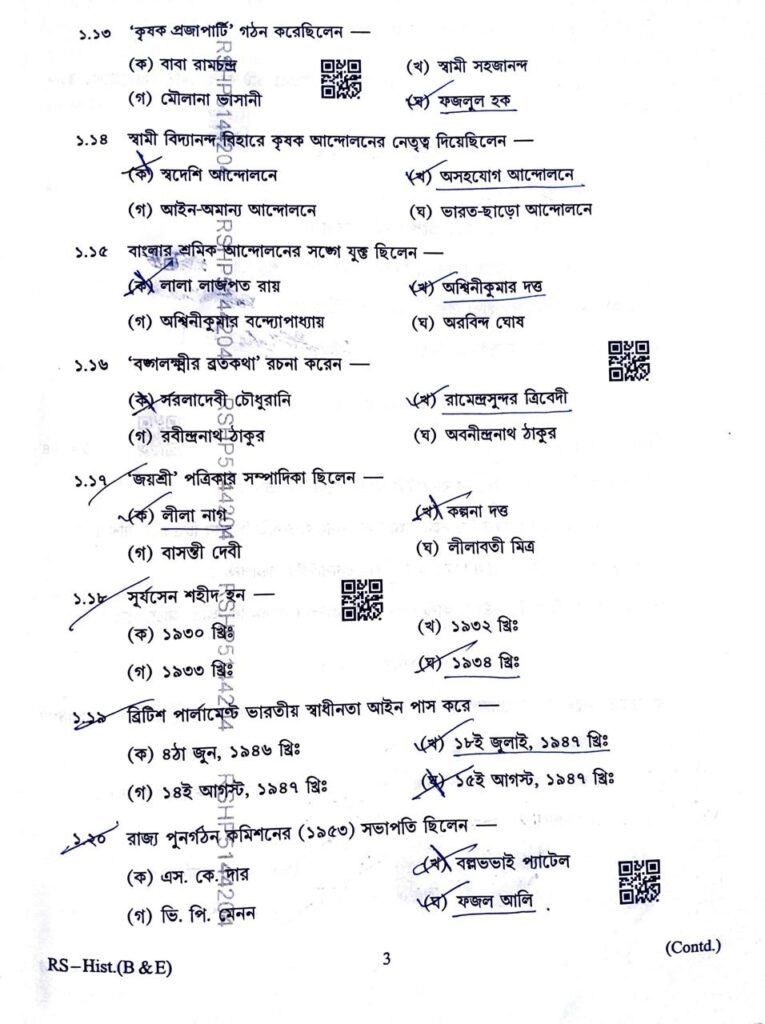 ১.১৩ 'কৃষক প্রজাপার্টি' গঠন করেছিলেন —
(ক) বাবা রামচন্দ্র (খ) স্বামী সহজানন্দ
(গ) মৌলানা ভাসানী (ঘ) ফজলুল হক
১.১৪ স্বামী বিদ্যানন্দ বিহারে কৃষক আন্দোলনের নেতৃত্ব দিয়েছিলেন —
(ক) স্বদেশি আন্দোলনে (খ) অসহযোগ আন্দোলনে
(গ) আইন-অমান্য আন্দোলনে (ঘ) ভারত-ছাড়ো আন্দোলনে
১.১৫ বাংলার শ্রমিক আন্দোলনের সঙ্গে যুক্ত ছিলেন —
(ক) লালা লাজপত রায় (খ) অশ্বিনীকুমার দত্ত
(গ) অশ্বিনীকুমার বন্দ্যোপাধ্যায় (ঘ) অরবিন্দ ঘোষ
১.১৬ 'বঙ্গলক্ষ্মীর ব্রতকথা' রচনা করেন —
(ক) সরলাদেবী চৌধুরানি (খ) রামেন্দ্রসুন্দর ত্রিবেদী
(গ) রবীন্দ্রনাথ ঠাকুর (ঘ) অবনীন্দ্রনাথ ঠাকুর
১.১৭ 'জয়শ্রী' পত্রিকার সম্পাদিকা ছিলেন —
(ক) লীলা নাগ (খ) কল্পনা দত্ত
(গ) বাসন্তী দেবী (ঘ) লীলাবতী মিত্র
১.১৮ সূর্যসেন শহীদ হন —
(ক) ১৯৩০ খ্রিঃ (খ) ১৯৩২ খ্রিঃ
(গ) ১৯৩৩ খ্রিঃ (ঘ) ১৯৩৪ খ্রিঃ
১.১৯ ব্রিটিশ পার্লামেন্ট ভারতীয় স্বাধীনতা আইন পাস করে —
(ক) ৪ঠা জুন, ১৯৪৬ খ্রিঃ (খ) ১৮ই জুলাই, ১৯৪৭ খ্রিঃ
(গ) ১৪ই আগস্ট, ১৯৪৭ খ্রিঃ (ঘ) ১৫ই আগস্ট, ১৯৪৭ খ্রিঃ
১.২০ রাজ্য পুনর্গঠন কমিশনের (১৯৫৩) সভাপতি ছিলেন —
(ক) এস. কে. দার (খ) বল্লভভাই প্যাটেল
(গ) ভি. পি. মেনন (ঘ) ফজল আলি
RSHP5144204 RSHP5144204 RSHP5144204 RSHP5144204 RSHP5144204
RS–Hist.(B & E) 3 (Contd.)